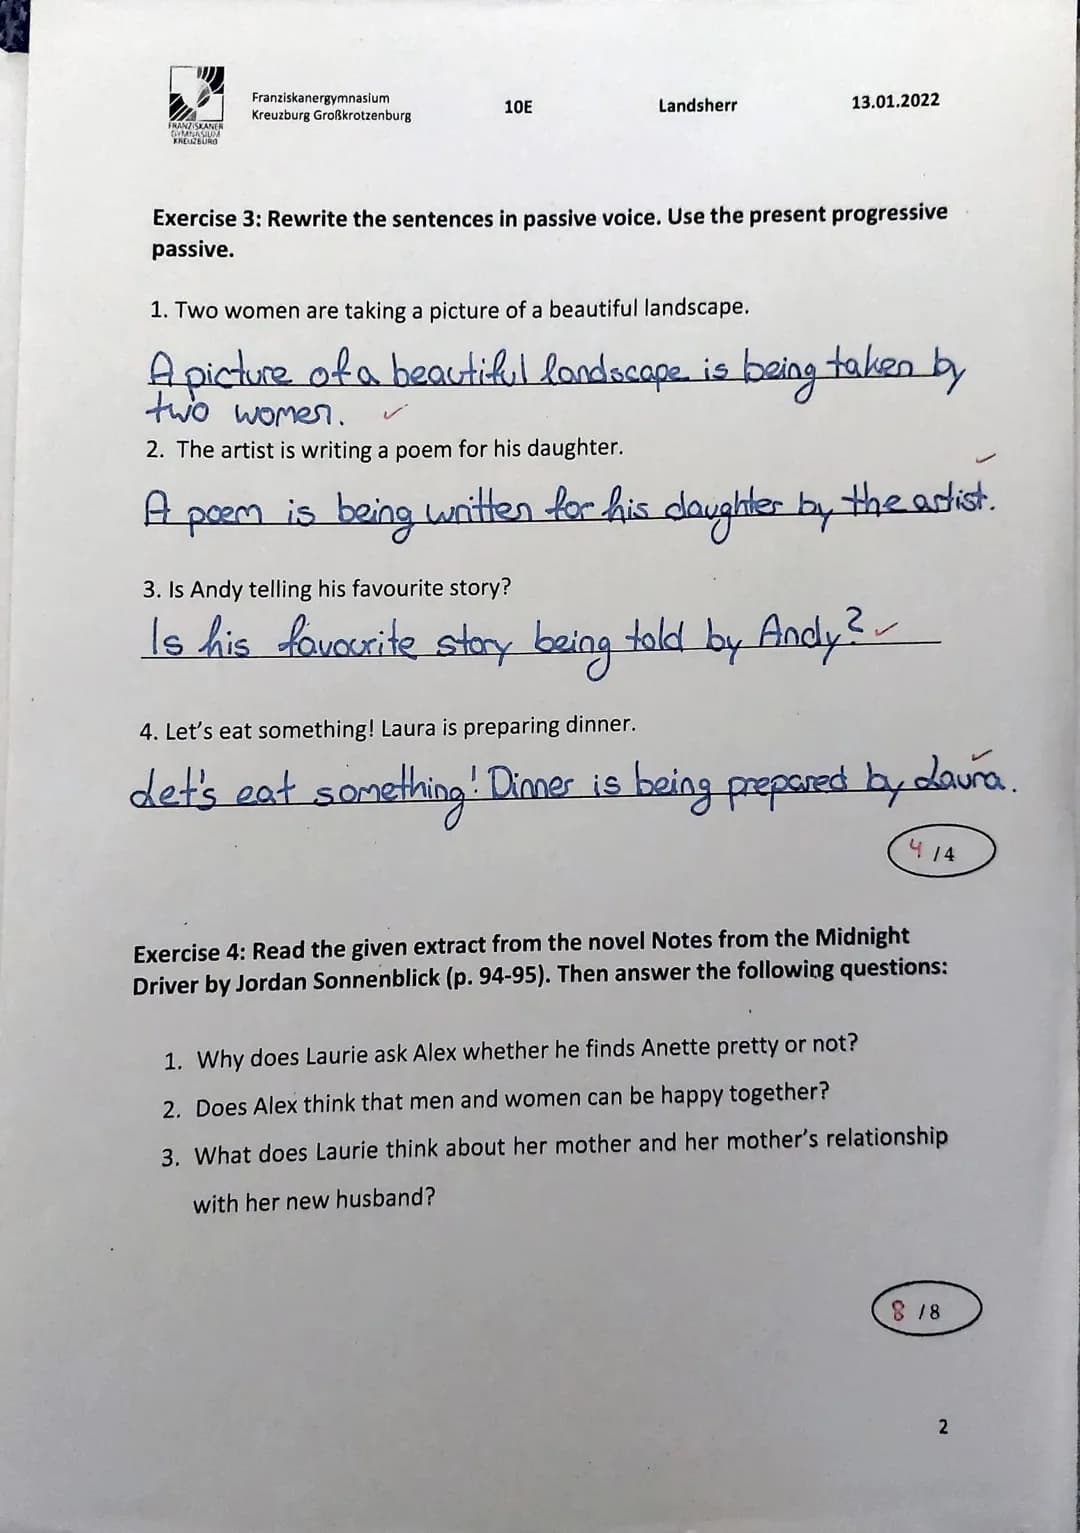 FRANZISKANER
GYMNASIUM
KREUZBURG
Franziskanergymnasium
Kreuzburg Großkrotzenburg
10E
Landsherr
13.01.2022
Exercise 3: Rewrite the sentences in passive voice. Use the present progressive
passive.
1. Two women are taking a picture of a beautiful landscape.
A picture of a beautiful landscape is being taken by
two women.
2. The artist is writing a poem for his daughter.
A poem is being written for his daughter by the artist.
3. Is Andy telling his favourite story?
Is his favourite story being told by Andy?
4. Let's eat something! Laura is preparing dinner.
Let's eat something! Dinner is being prepared by Laura.
4 /4
Exercise 4: Read the given extract from the novel Notes from the Midnight
Driver by Jordan Sonnenblick (p. 94-95). Then answer the following questions:
1. Why does Laurie ask Alex whether he finds Anette pretty or not?
2. Does Alex think that men and women can be happy together?
3. What does Laurie think about her mother and her mother's relationship
with her new husband?
8 /8
2